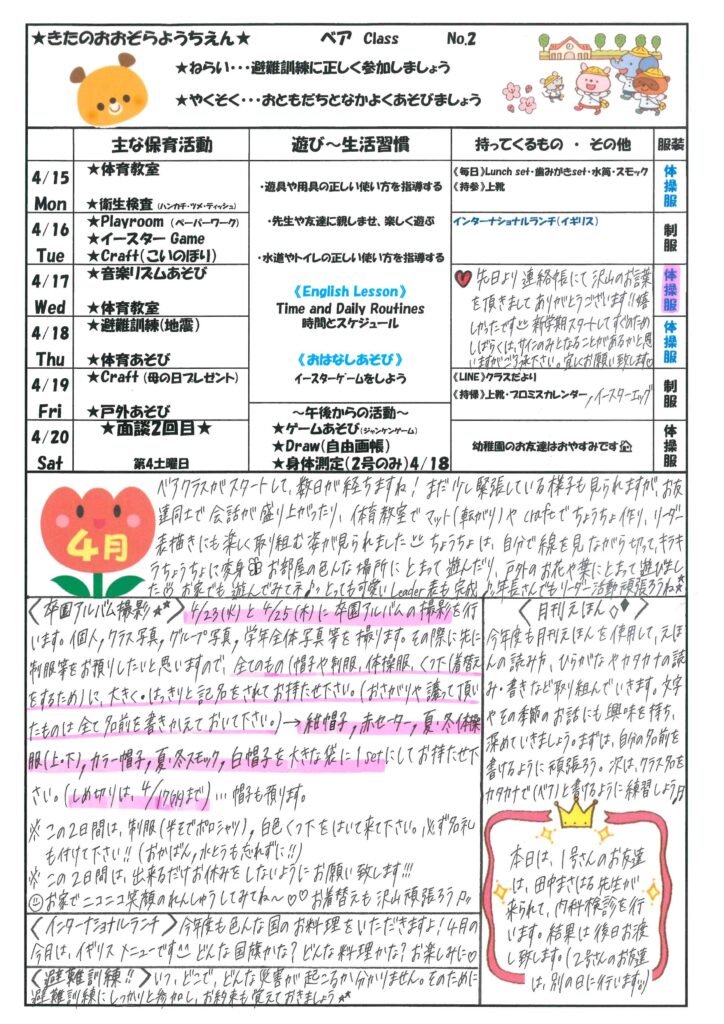 ★きたのおおぞらようちえん★ ベア Class No.2
★ねらい・・・避難訓練に正しく参加しましょう
★やくそく・・・おともだちとなかよくあそびましょう
主な保育活動 遊び～生活習慣 持ってくるもの ・ その他 服装
4/15
Mon
★体育教室
★衛生検査(ハンカチ・ツメ・ティッシュ)
4/16
Tue
★Playroom (ペーパーワーク)
★イースター Game
★Craft(こいのぼり)
4/17
Wed
★音楽リズムあそび
★体育教室
4/18
Thu
★避難訓練(地震)
★体育あそび
4/19
Fri
★Craft (母の日プレゼント)
★戸外あそび
4/20
Sat
★面談2回目★
第4土曜日
・遊具や用具の正しい使い方を指導する
・先生や友達に親しませ、楽しく遊ぶ
・水道やトイレの正しい使い方を指導する
《English Lesson》
Time and Daily Routines
時間とスケジュール
《おはなしあそび》
イースターゲームをしよう
～午後からの活動～
★ゲームあそび(ジャンケンゲーム)
★Draw(自由画帳)
★身体測定(2号のみ)4/18
《毎日》Lunch set・歯みがきset・水筒・スモック
《持参》上靴
インターナショナルランチ(イギリス)
先日より連絡帳にて沢山のお言葉
を頂きまして ありがとうございます!!嬉
しかったです 新学期スタートしてすぐのため
しばらくは、サインのみとなることがあるかと思
いますがご了承下さい。宜しくお願い致します♡
《LINE》クラスだより
《持帰》上靴・プロミスカレンダー,イースターエッグ
幼稚園のお友達はおやすみです
体操服
制服
体操服
体操服
制服
体操服
4月
ベアクラスがスタートして、数日が経ちますね! まだ少し緊張している様子も見られますが、お友
達同士で会話が盛り上がったり、体育教室でマット(転がり)や craftでちょうちょ作り、リーダー
表描きにも楽しく取り組む姿が見られました ちょうちょは、自分で線を見ながら切って、キラキ
うちょうちょに変身 お部屋の色んな場所にとまって遊んだり、戸外のお花や葉にとまって遊びまし
た お家でも遊んでみて下さい♪とっても可愛いLeader表も完成♪年長さんでもリーダー活動頑張ろうね★
〈卒園アルバム撮影★〉4/23(火)と4/25(木)に卒園アルバムの撮影を行
います。個人,クラス写真,グループ写真,学年全体写真等を撮ります。その際に先に
制服等をお預りしたいと思いますので、全てのもの(帽子や制服、体操服、くつ下(着替え
をするため)に、大きく・はっきりと記名をされてお持たせ下さい。(おさがりや譲って頂い
たものは全て名前を書きかえておいて下さい。)→紺帽子,赤セーター,夏・冬体操
服(上・下),カラー帽子,夏・冬スモック,白帽子を大きな袋に1setにしてお持たせ下
さい。(しめ切りは、4/17(水)まで)…帽子も預ります。
※この2日間は、制服(半そでポロシャツ),白色くつ下をはいて来て下さい。必ず名札
も付けて下さい!! (おかばん,水とうも忘れずに!!)
※この2日間は、出来るだけお休みをしないようにお願い致します!!!
お家でニコニコ笑顔のれんしゅうしてみてね～♡♡お着替えも沢山頑張ろう♪
〈月刊えほん◇◆〉
今年度も月刊えほんを使用して、えほ
んの読み方、ひらがなやカタカナの読
み・書きなど取り組んでいきます。文字
やその季節のお話にも興味を持ち、
深めていきましょう。まずは、自分の名前を
書けるように頑張ろう。次は、クラス名を
カタカナで(ベア)と書けるように練習しよう♪
本日は、1号さんのお友達
は、田中まさはる先生が
来られて、内科検診を行
います。結果は後日お渡
し致します。(2号さんのお友達
は、別の日に行います)
〈インターナショナルランチ〉今年度も色んな国のお料理をいただきますよ!4月の
今月は、イギリスメニューです どんな国旗かな?どんな料理かな?お楽しみに♡
〈避難訓練!!〉いつ、どこで、どんな災害が起こるか分かりません。そのために
避難訓練にしっかりと参加し、お約束も覚えておきましょう★